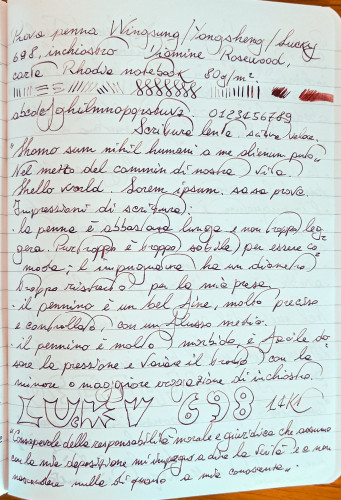 Prova penna Wingsung/Yongsheng/Lucky
698, inchiostro Jasmine Rosewood,
carta Rhodia notebook 80g/m².
abcdefghiilmnopqrstuvz 0123456789
Scrittura lenta. scrittura veloce.
"Homo sum nihil humani a me alienum puto"
Nel mezzo del cammin di nostra vita.
Hello world. Lorem ipsum. sasa prova
Impressioni di scrittura:
· la penna è abbastanza lunga e non troppo leg-
gera. Purtroppo è troppo sottile per essere co-
moda; l'impugnatura ha un diametro
troppo ristretto per la mia presa.
· il pennino è un bel fine, molto preciso
e controllato, con un flusso medio.
· il pennino è molto morbido, è facile do-
sare la pressione e variare il tratto con la
minore o maggiore erogazione di inchiostro.
LUCKY 698 14K
"Consapevole della responsabilità morale e giuridica che assumo
con la mia deposizione mi impegno a dire la verità e a non
nascondere nulla di quanto a mia conoscenza".